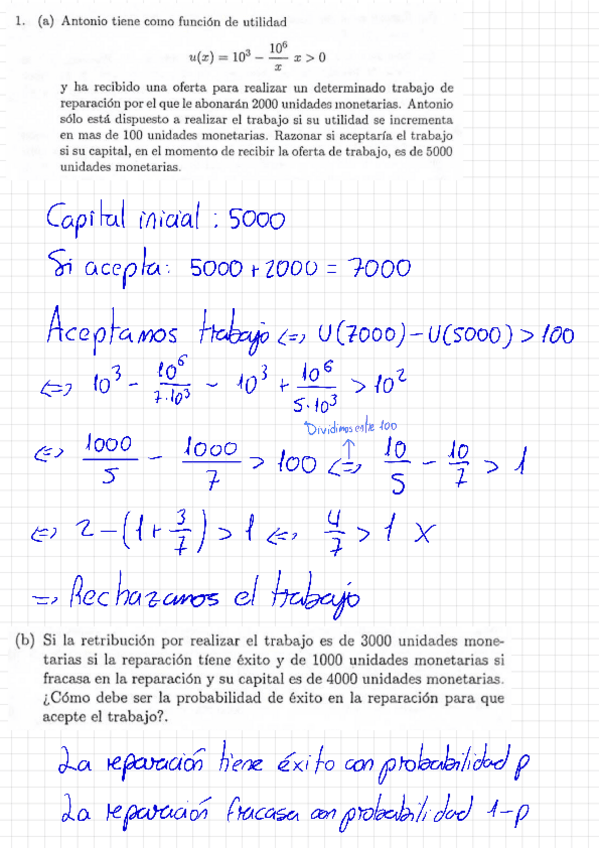 1. (a) Antonio tiene como función de utilidad
u(x) = 10³ − 10⁶/x x > 0
y ha recibido una oferta para realizar un determinado trabajo de
reparación por el que le abonarán 2000 unidades monetarias. Antonio
sólo está dispuesto a realizar el trabajo si su utilidad se incrementa
en mas de 100 unidades monetarias. Razonar si aceptaría el trabajo
si su capital, en el momento de recibir la oferta de trabajo, es de 5000
unidades monetarias.
Capital inicial : 5000
Si acepta: 5000 + 2000 = 7000
Aceptamos trabajo <=> U(7000) − U(5000) > 100
<=> 10³ − 10⁶/7·10³ − 10³ + 10⁶/5·10³ > 10²
Dividimos entre 100
<=> 1000/5 − 1000/7 > 100 <=> 10/5 − 10/7 > 1
<=> 2 − (1 + 3/7) > 1 <=> 4/7 > 1 X
=> Rechazamos el trabajo
(b) Si la retribución por realizar el trabajo es de 3000 unidades mone-
tarias si la reparación tiene éxito y de 1000 unidades monetarias si
fracasa en la reparación y su capital es de 4000 unidades monetarias.
¿Cómo debe ser la probabilidad de éxito en la reparación para que
acepte el trabajo?.
La reparación tiene éxito con probabilidad p
La reparación fracasa con probabilidad 1-p